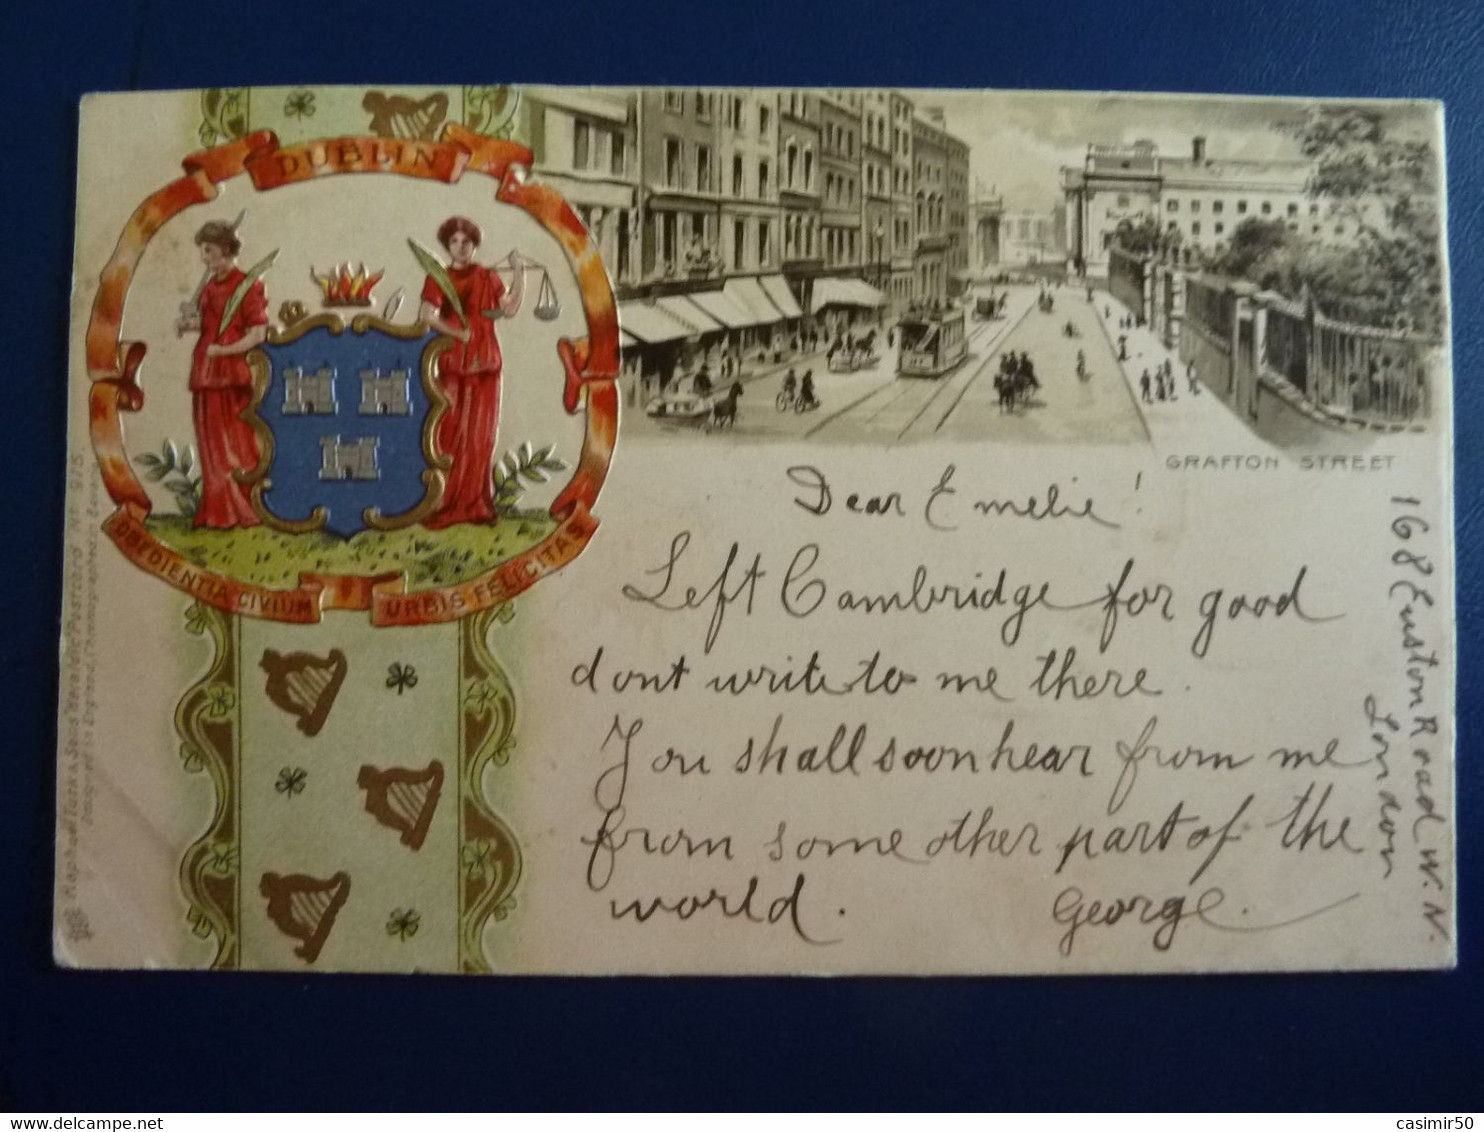 DUBLIN
OBEDIENTIA CIVIUM URBIS FELICITAS
GRAFTON STREET
Dear Emelie!
Left Cambridge for good
dont write to me there.
You shall soon hear from me
from some other part of the
world. George.
168 Euston Road N.W.
London
Raphael Tuck & Sons Heraldic Postcard No. 975
Designed in England, Chromographed in Bavaria
casimir50